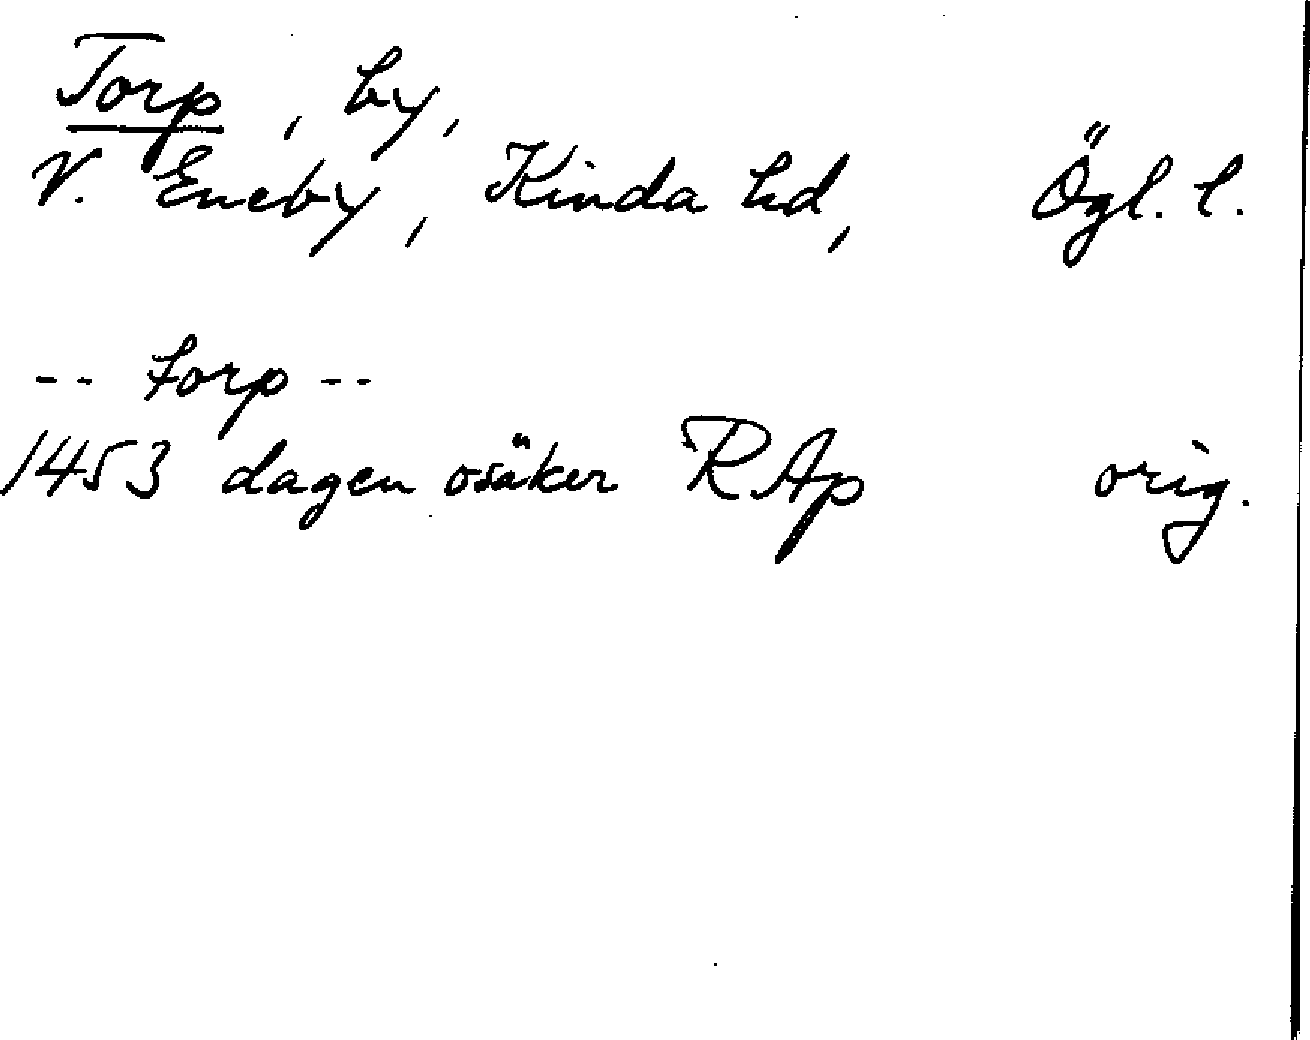 Torp, by,
V. Eneby, Kinda hd, Ögl. l.
-- torp --
1453 dagen osäker RAp orig.